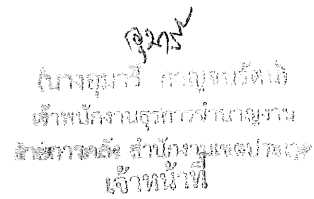 (นางอุมารี กาญจนวัฒน์)
เจ้าพนักงานธุรการชำนาญงาน
ฝ่ายการคลัง สำนักงานเขตประเวศ
เจ้าหน้าที่